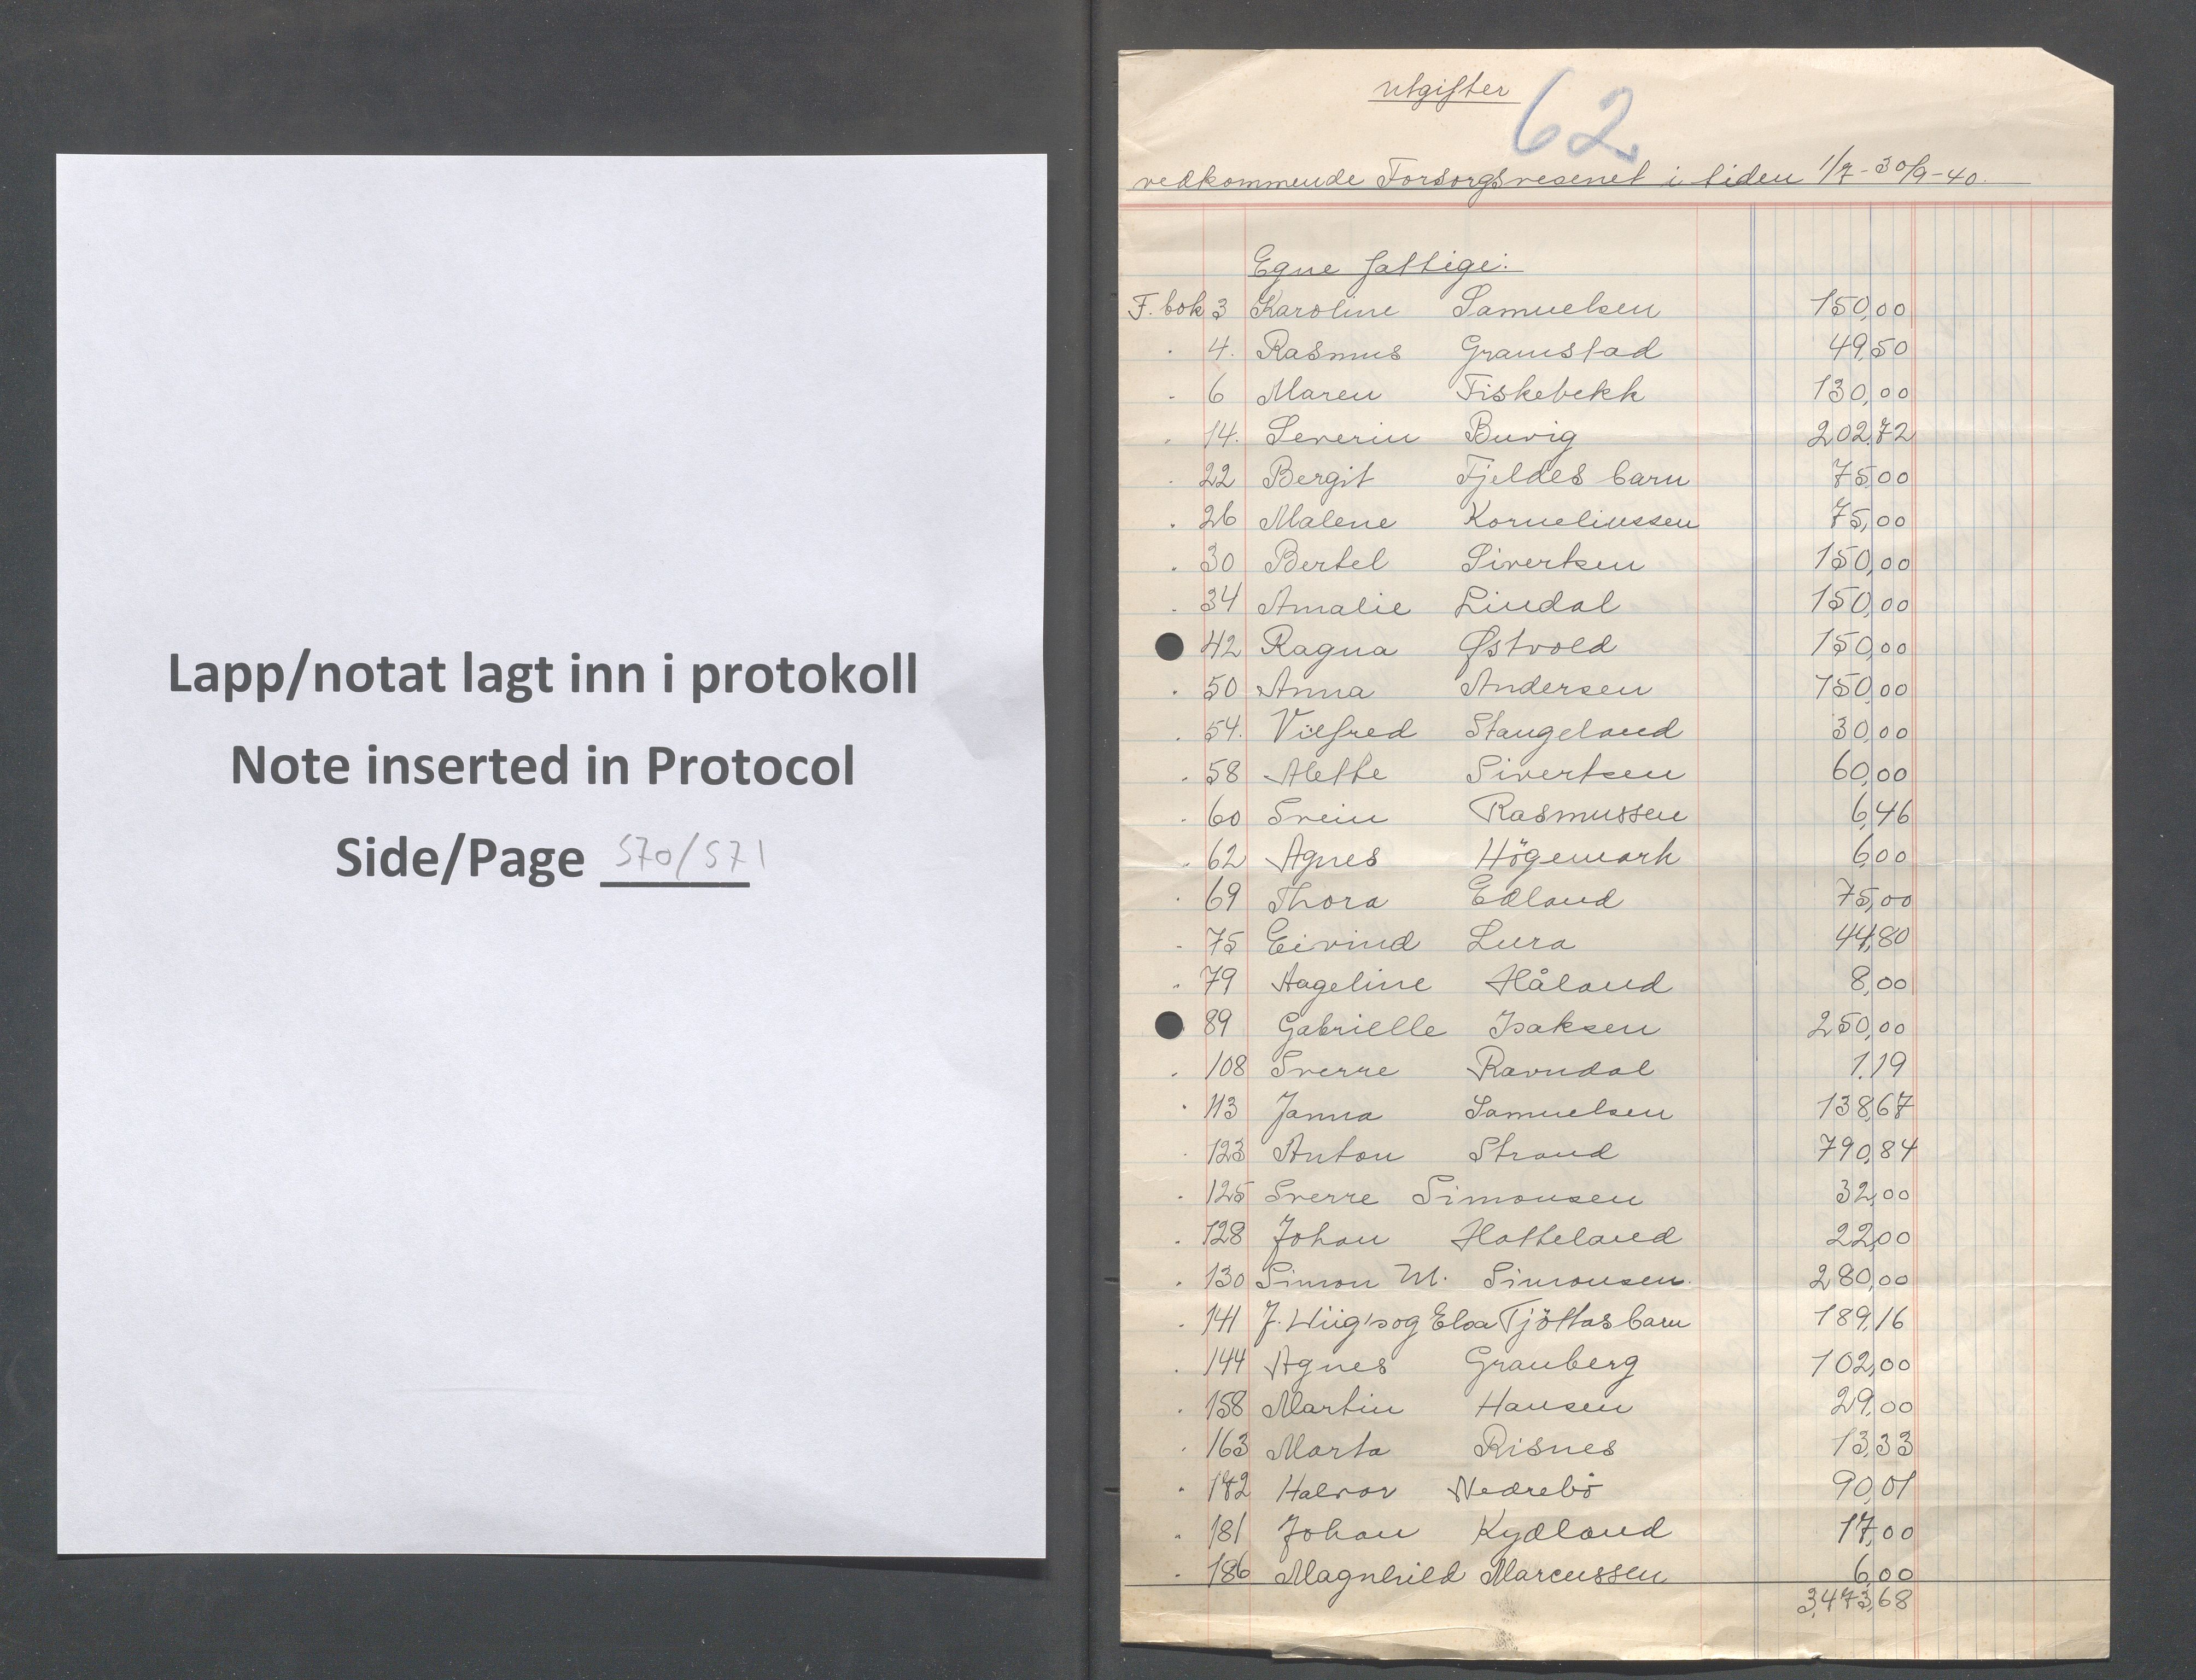 Lapp/notat lagt inn i protokoll
Note inserted in Protocol
Side/Page 570/571
utgifter
62
vedkommende Forsorgsvesenet i tiden 1/7-30/9-40.
Egne fattige:
F. bok 3 Karoline Samuelsen 150,00
" 4. Rasmus Gramstad 49,50
" 6 Maren Fiskebekk 130,00
" 14. Severin Buvig 202,72
" 22 Bergit Fjeldes barn 75,00
" 26 Malene Korneliussen 75,00
" 30 Bertel Sivertsen 150,00
" 34 Amalie Lindal 150,00
42 Ragna Østvold 150,00
" 50 Anna Andersen 150,00
" 54. Vilfred Stangeland 30,00
" 58 Alette Sivertsen 60,00
" 60 Svein Rasmussen 6,46
" 62 Agnes Högemark 6,00
" 69 Thora Edland 75,00
" 75 Eivind Lura 44,80
" 79 Hageline Håland 8,00
89 Gabrielle Isaksen 250,00
" 108 Sverre Ravndal 1.19
" 113 Janna Samuelsen 138,67
" 123 Anton Strand 790,84
" 125 Sverre Simonsen 32,00
" 128 Johan Hatteland 22,00
" 130 Simon M. Simonsen. 280,00
" 141 J. Wiig's og Elsa Tjöttas barn 189,16
" 144 Agnes Granberg 102,00
" 158 Martin Hansen 29,00
" 163 Marta Risnes 13,33
" 172 Halvor Nedrebö 90,01
" 181 Johan Kydland 17,00
" 186 Magnhild Marcussen 6,00
3,473,68